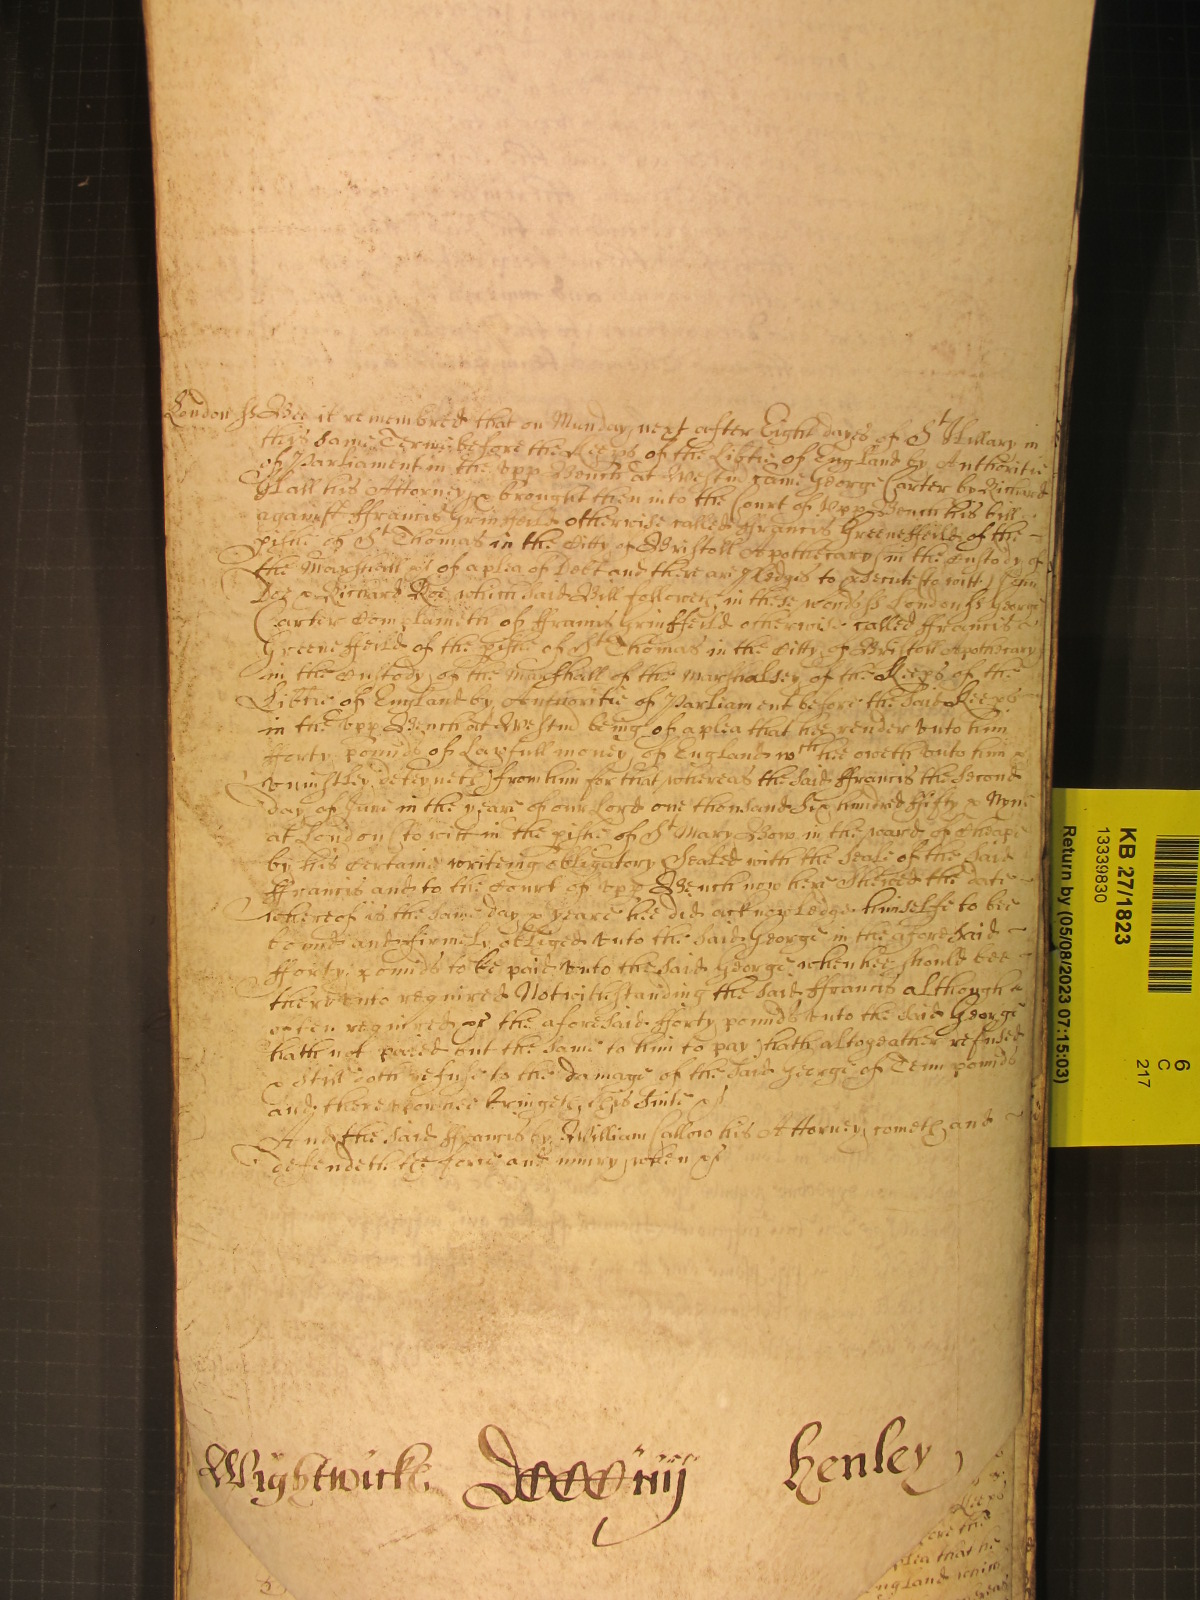 London ss Bee it remembred that on Munday next after Eight dayes of St Hillary in
this same Terme before the Keeps of the Libtie of England by Authoritie
of Parliament in the Upp Bench at Westm came George Carter by Richard
Hall his Attorney & brought then into the Court of Upp Bench his bill
against ffrancis Grinffeild otherwise called ffrancis Greeneffeild of the
pishe of St Thomas in the Citty of Bristoll Apothecary in the Custody of
the Marshall &c of a plea of Debt and there are Pledges to prosecute to witt John
Doe & Richard Roe which said Bill followeth in these words ss London ss George
Carter Complaineth of ffrancis Grinffeild otherwise called ffrancis
Greeneffeild of the pishe of St Thomas in the Citty of Bristoll Apothecary
in the Custody of the Marshall of the Marshalsey of the Keeps of the
Libtie of England by Authoritie of Parliament before the said Keeps
in the Upp Bench at Westm being of a plea that hee render unto him
fforty pounds of Lawfull money of England wch hee oweth unto him &
uniustley deteyneth from him for that whereas the said ffrancis the second
day of June in the yeare of our Lord one thousand six hundred ffifty & Nyne
at London to witt in the pishe of St Mary Bow in the ward of Cheape
by his Certaine writeing obligatory Sealed with the Seale of the said
ffrancis and to the Court of Upp Bench now here shewed the date
whereof is the same day & yeare hee did acknowledge himselfe to bee
bound and firmely obliged unto the said George in the aforesaid
fforty pounds to be paid unto the said George when hee should bee
thereunto required Notwithstanding the said ffrancis although
often required &c the aforesaid fforty pounds unto the said George
hath not payed but the same to him to pay hath altogeather refused
& still doth refuse to the damage of the said George of Tenn pounds
and thereupon hee bringeth his suite &c
And the said ffrancis by William Callow his Attorney cometh and
defendeth the force and iniury when &c
Wightwicke
Henley
Keeps
fore the
plea that he
England which
KB 27/1823
13339830
Return by (05/08/2023 07:15:03)
6
C
217